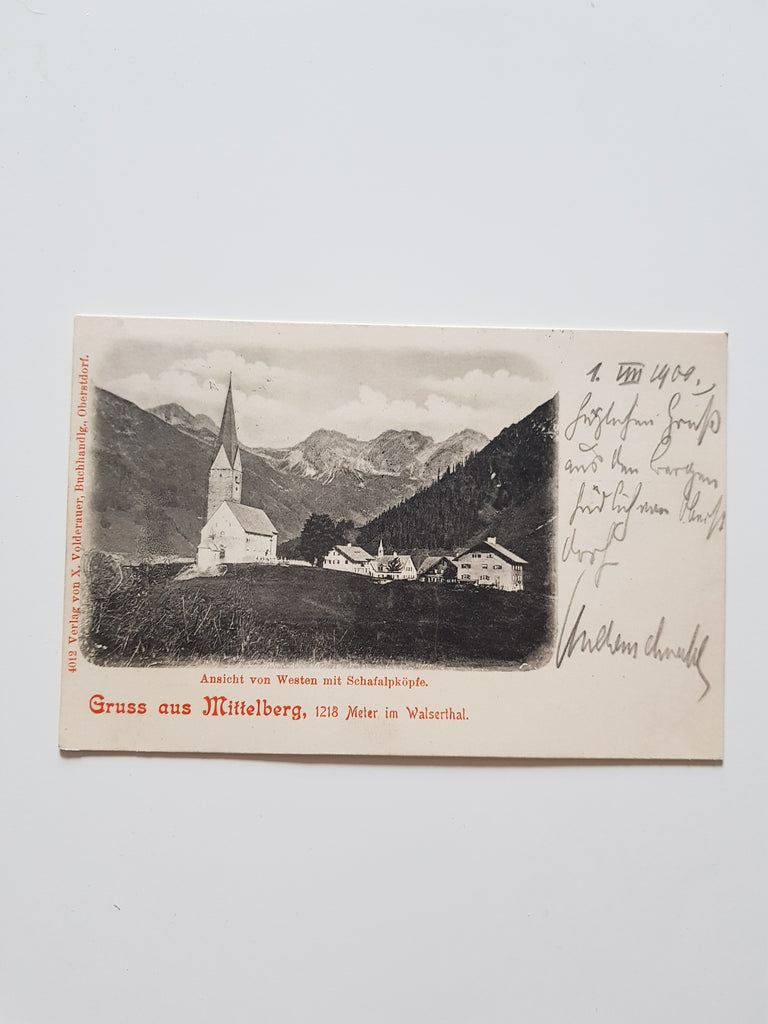 4012 Verlag von X. Volderauer, Buchhandlg., Oberstdorf.
1. VIII 1900.
Herzlichen Gruß
aus den Bergen
südlich von Oberst
dorf
Ansicht von Westen mit Schafalpköpfe.
Gruss aus Mittelberg, 1218 Meter im Walserthal.